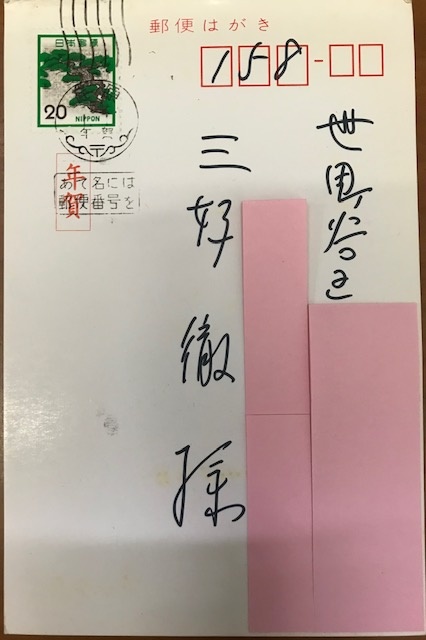 郵便はがき
日本郵便
20
NIPPON
年賀
158
年賀
あて名には
郵便番号を
世田谷区
三好徹様